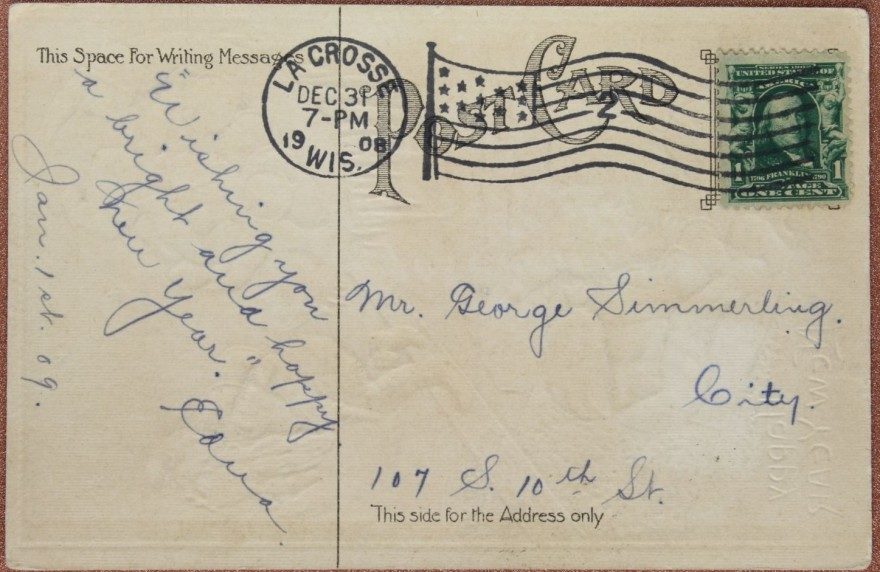 This Space For Writing Messages
"Wishing you
a bright and happy
New Year."
Edna
Jan. 1st. 09.
LA CROSSE
DEC 31
7-PM
1908
WIS.
POST CARD
2
SERIES 1902
UNITED STATES OF
AMERICA
1706 FRANKLIN 1790
POSTAGE
1
ONE CENT
Mr. George Simmerling.
City.
107 S. 10th St.
This side for the Address only